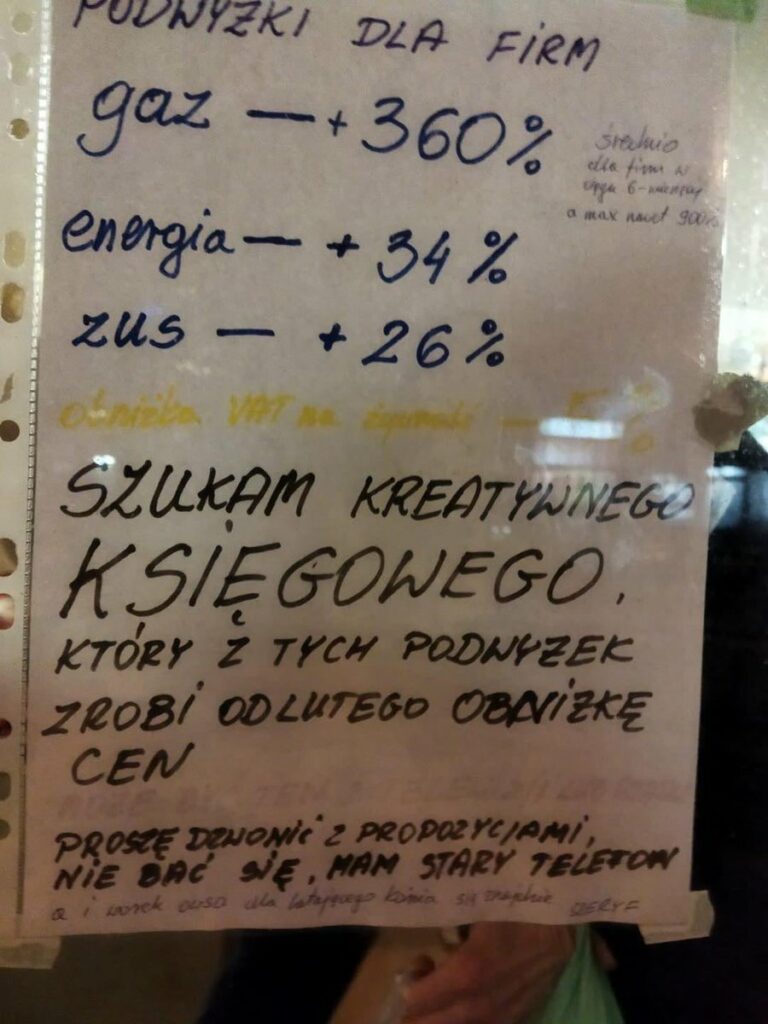 PODWYŻKI DLA FIRM
gaz — + 360%
średnio
dla firm w
a max nawet 900%
energia — + 34%
zus — + 26%
obniżka VAT na żywność — 5%
SZUKAM KREATYWNEGO
KSIĘGOWEGO,
KTÓRY Z TYCH PODWYZEK
ZROBI OD LUTEGO OBNIZKĘ
CEN
PROSZĘ DZWONIĆ Z PROPOZYCJAMI,
NIE BAĆ SIĘ, MAM STARY TELEFON
a i worek owsa dla latającego konia się znajdzie